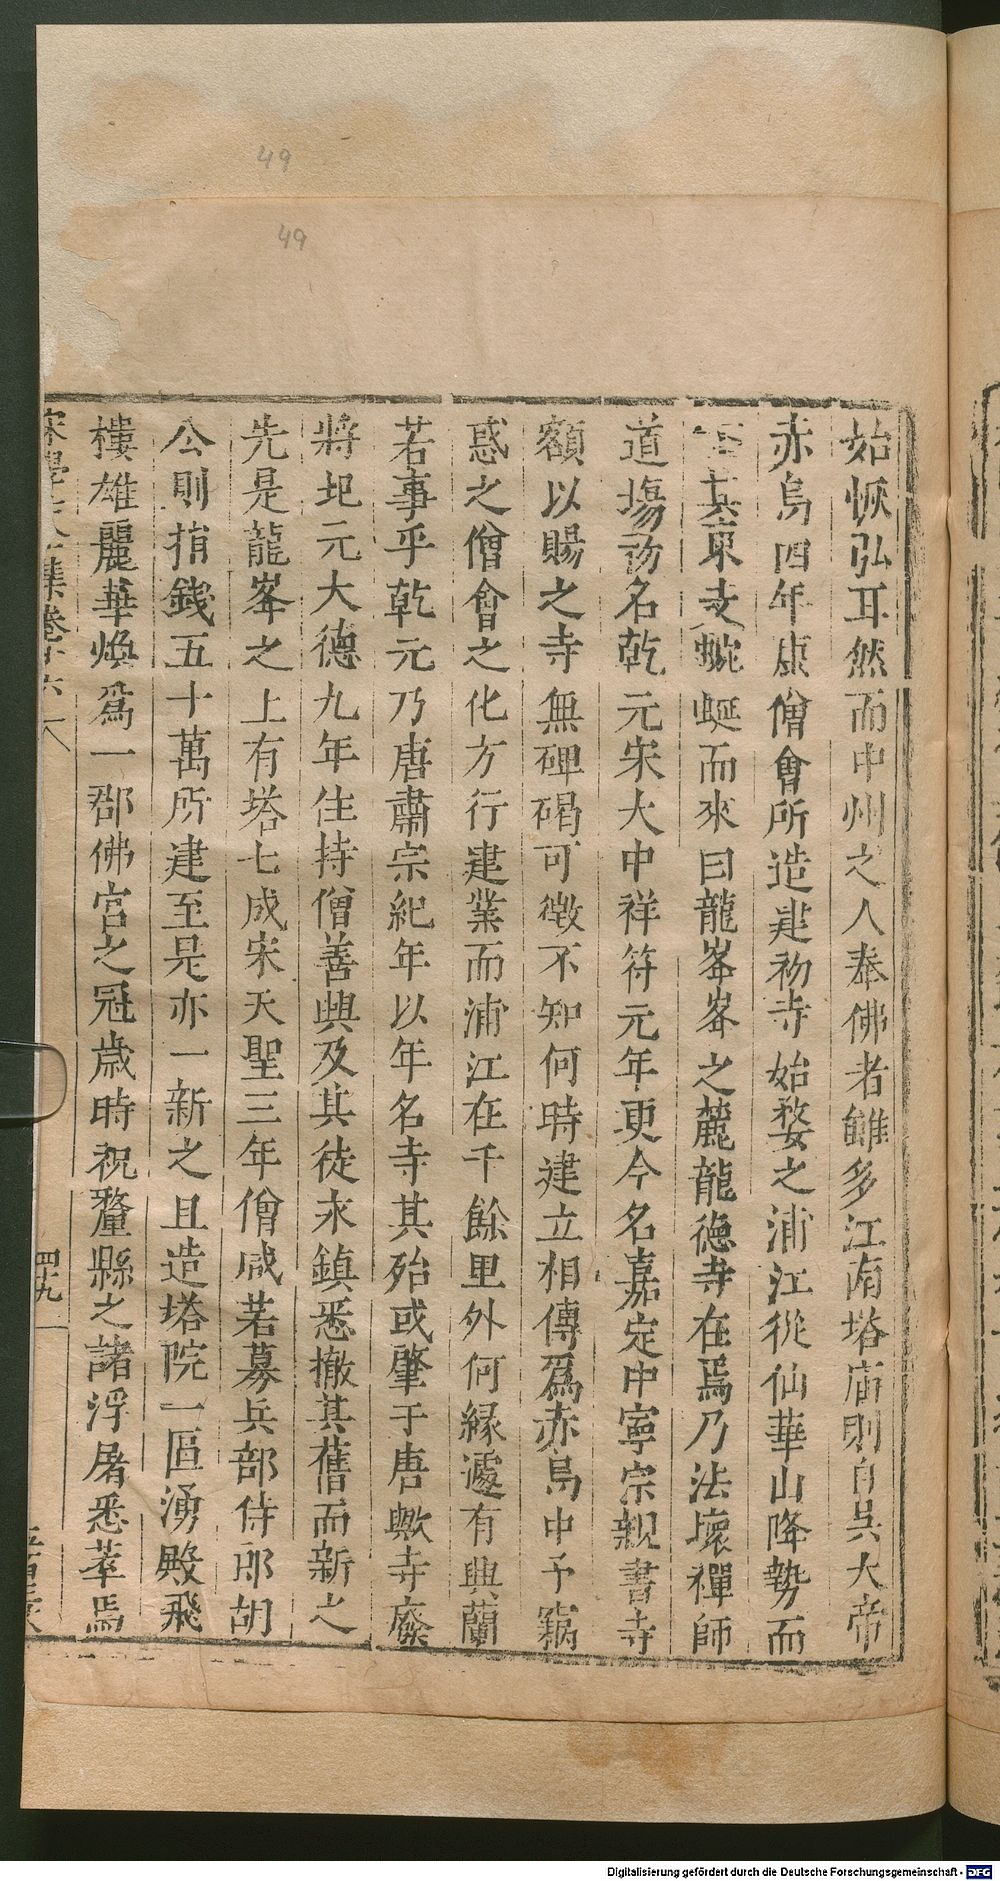 49
49
始恢弘耳然而中州之人奉佛者雖多江南塔庙則自吴大帝
赤烏四年康僧會所造建初寺始婺之浦江從仙華山降勢而
其東支蜿蜒而來曰龍峯峯之麓龍德寺在焉乃法壞禪師
道場初名乾元宋大中祥符元年更今名嘉定中寧宗親書寺
額以賜之寺無碑碣可徵不知何時建立相傳爲赤烏中予竊
惑之僧會之化方行建業而浦江在千餘里外何縁遽有興蘭
若事乎乾元乃唐肅宗紀年以年名寺其殆或肇于唐歟寺廢
將圯元大德九年住持僧善興及其徒永鎮悉撤其舊而新之
先是龍峯之上有塔七成宋天聖三年僧咸若募兵部侍郎胡
公則捐錢五十萬所建至是亦一新之且造塔院一區湧殿飛
樓雄麗華煥爲一郡佛宮之冠歳時祝釐縣之諸浮屠悉萃焉
宋學士全集卷十六
四九
Digitalisierung gefördert durch die Deutsche Forschungsgemeinschaft - DFG